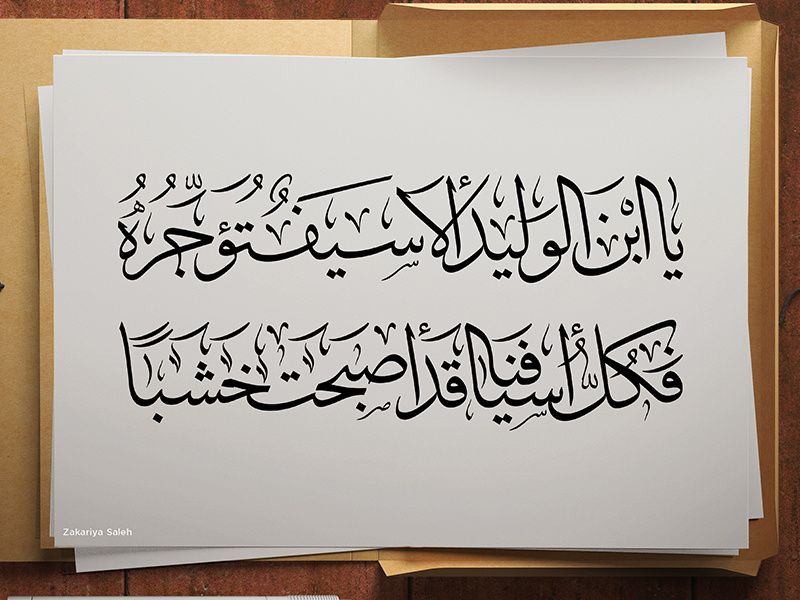 يا ابْنَ الوَليد ألا سيَفٌ تُؤَجِّرُهُ
فَكُلُّ أسيافنا قَد أصبحَت خَشَبًا
Zakariya Saleh